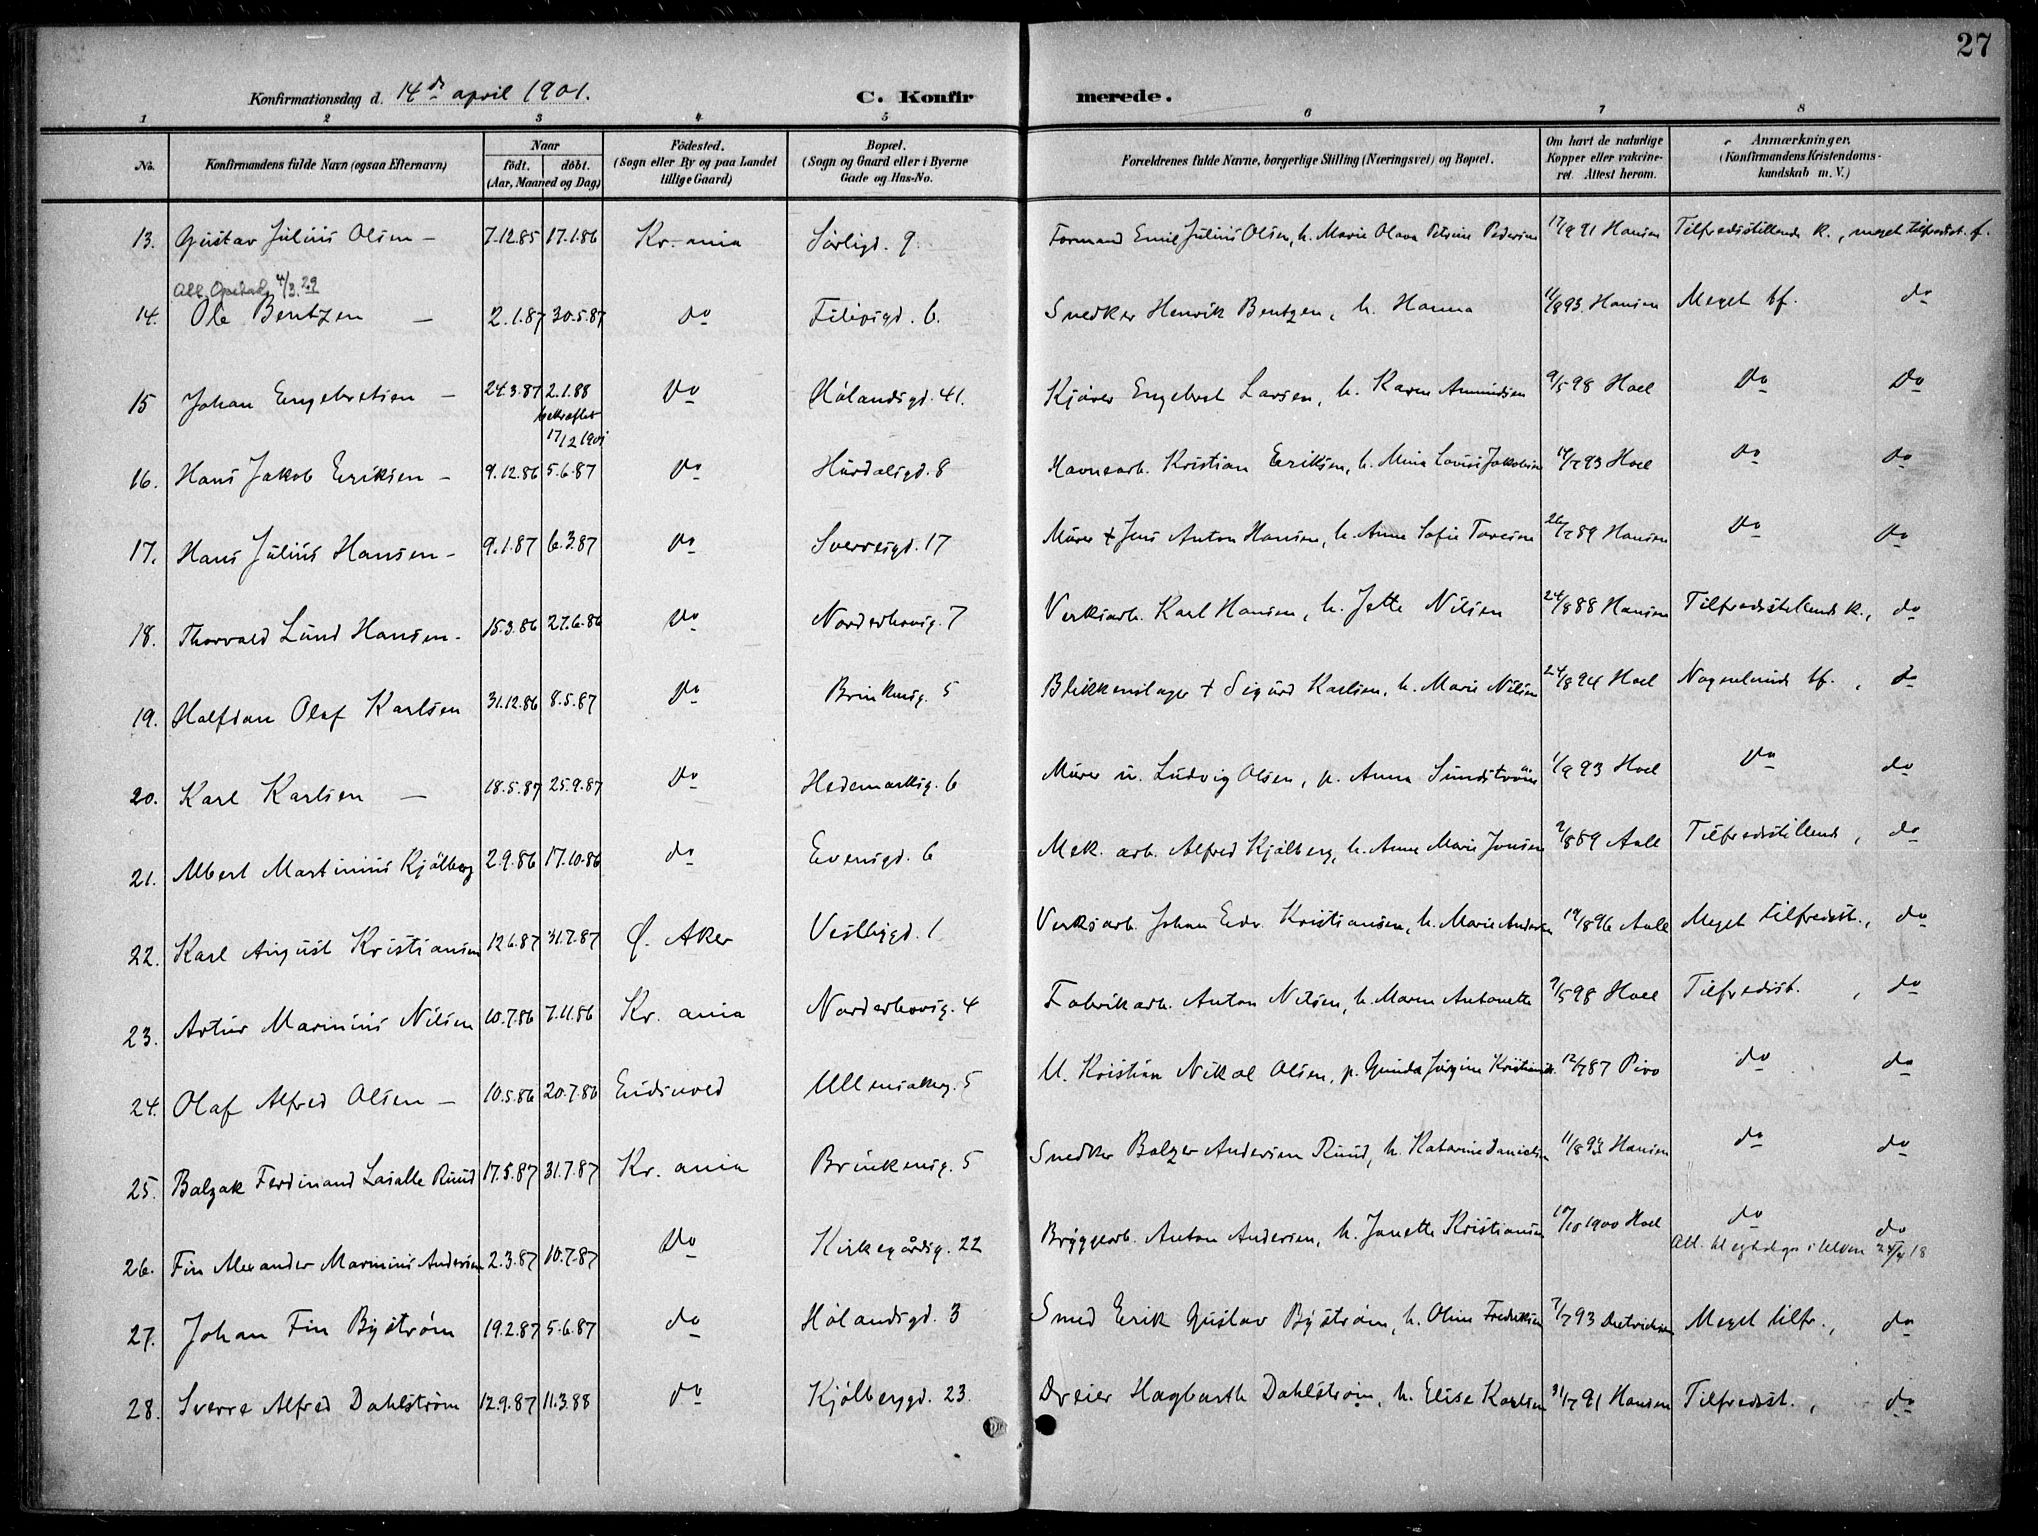 27
Konfirmationsdag d. 14de april 1901. C. Konfirmerede.
1 2 3 4 5 6 7 8
No. Konfirmandens fulde Navn (ogsaa Efternavn) Naar födt. döbt. (Aar, Maaned og Dag) Födested. (Sogn eller By og paa Landet tillige Gaard) Bopæl. (Sogn og Gaard eller i Byerne Gade og Hus-No. Forældrenes fulde Navne, borgerlige Stilling (Næringsvei) og Bopæl. Om havt de naturlige Kopper eller vakcineret. Attest herom. Anmærkninger, (Konfirmandens Kristendomskundskab m. V.)
13. Gustav Julius Olsen – 7.12.85 17.1.86 Kr.ania Sørligd. 9. Formand Emil Julius Olsen, h. Marie Olava Petrine Pedersen 17/9 91 Hansen Tilfredsstillende k., meget tilfredsst. f.
Att. 4/3.29
14. Ole Bentzen – 2.1.87 30.5.87 do Filipsgd. 6. Snedker Henrik Bentzen, h. Hanna 11/8 93. Hansen Meget tf. do
15 Johan Engebretsen – 24.3.87 2.1.88 bekræftet 17/2 1901 Do Hølandsgd. 41. Kjører Engebret Larsen, h. Karen Amundsen 9/5 98 Hoel Do Do
16. Hans Jakob Eriksen – 9.12.86 5.6.87 Do Hurdalsgd. 8 Havnearb. Kristian Eriksen, h. Mina Lovise Jakobsen 14/7 93 Hoel Do do
17. Hans Julius Hansen – 9.1.87 6.3.87 Do Sverresgd. 17 Murer + Jens Anton Hansen, h. Anne Sofie 26/7 89 Hansen Do do
18. Thorvald Lund Hansen – 15.3.86 27.6.86 Do Norderhovsg. 7 Verksarb. Karl Hansen, h. Jette Nilsen 24/8 88 Hansen Tilfredsstillende k., do
19. Halfdan Olaf Karlsen 31.12.86 8.5.87 Do Brinkensg. 5 Blikkenslager + Sigurd Karlsen, h. Marie Nilsen 24/8 94 Hoel Nogenlunde tf. , do
20. Karl Karlsen – 18.5.87 25.9.87 Do Hedemarksg. 6 Murer u. Ludvig Olsen, p. Anna Sundström 1/9 93 Hoel Do do
21. Albert Martinius Kjølberg 2.9.86 17.10.86 do Evensgd. 6 Mek. arb. Alfred Kjølberg, h. Anne Marie Jonsen 9/8 89 Aall Tilfredsstillende , do
22. Karl August Kristiansen 12.6.87 31.7.87 Ø. Aker Vestbygd. 1 Verksarb. Johan Edv. Kristiansen, h. Marie Andersen 19/8 96 Aall Meget tilfredsst., do
23. Artur Marinius Nilsen 10.7.86 7.11.86 Kr.ania Norderhovsg. 4 Fabrikarb. Anton Nilsen, h. Maren Antonette 9/5 98 Hoel Tilfredsst. , do
24. Olaf Alfred Olsen – 10.5.86 20.7.86 Eidsvold Ullensakerg. 5 U. Kristian Nikol Olsen, p. Gunda Jørgine 12/7 87 Pivo do do
25. Balzak Ferdinand Lasalle Ruud 17.5.87 31.7.87 Kr.ania Brinkensg. 5 Snedker Balzer Andersen Ruud, h. Katarine Danielsen 11/8 93 Hansen do do
26. Fin Alexander Marinius Andersen 2.3.87 10.7.87 Do Kirkegårdsg. 22 Bryggearb. Anton Andersen, h. Janette Kristiansen 10/10 1900 Hoel do do
Att. til 24/4 18
27. Johan Fin Byström 19.2.87 5.6.87 do Hølandsgd. 3 Smed Erik Gustav Byström, h. Oline Fredriksen 7/7 93 Dietrichson Meget tilfr., do
28. Sverre Alfred Dahlström 12.9.87 11.3.88 do Kjølberggd. 23. Dreier Hagbarth Dahlström, h. Elise Karlsen 31/7 91 Hansen Tilfredsst. , do